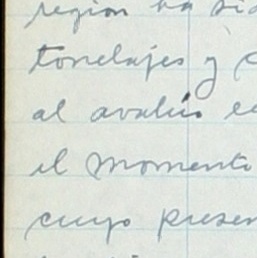 region ha sid
tonelajes y c
al avalúo ec
el momento
cuyo presen